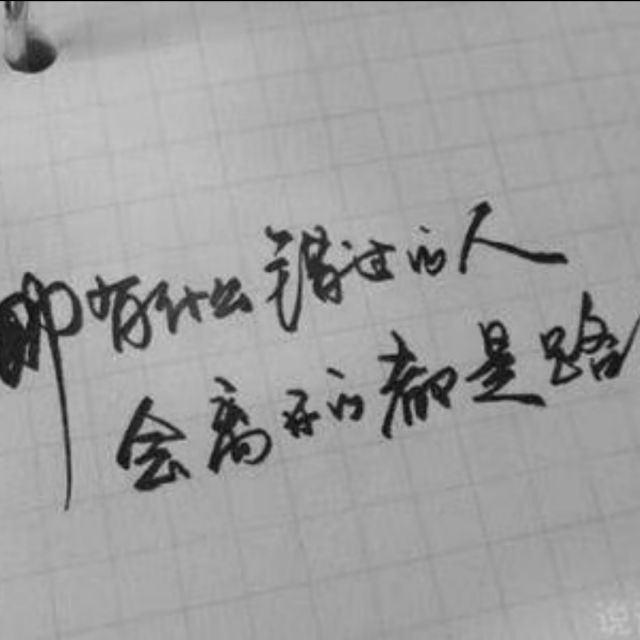 那有什么错过的人
会离开的都是路